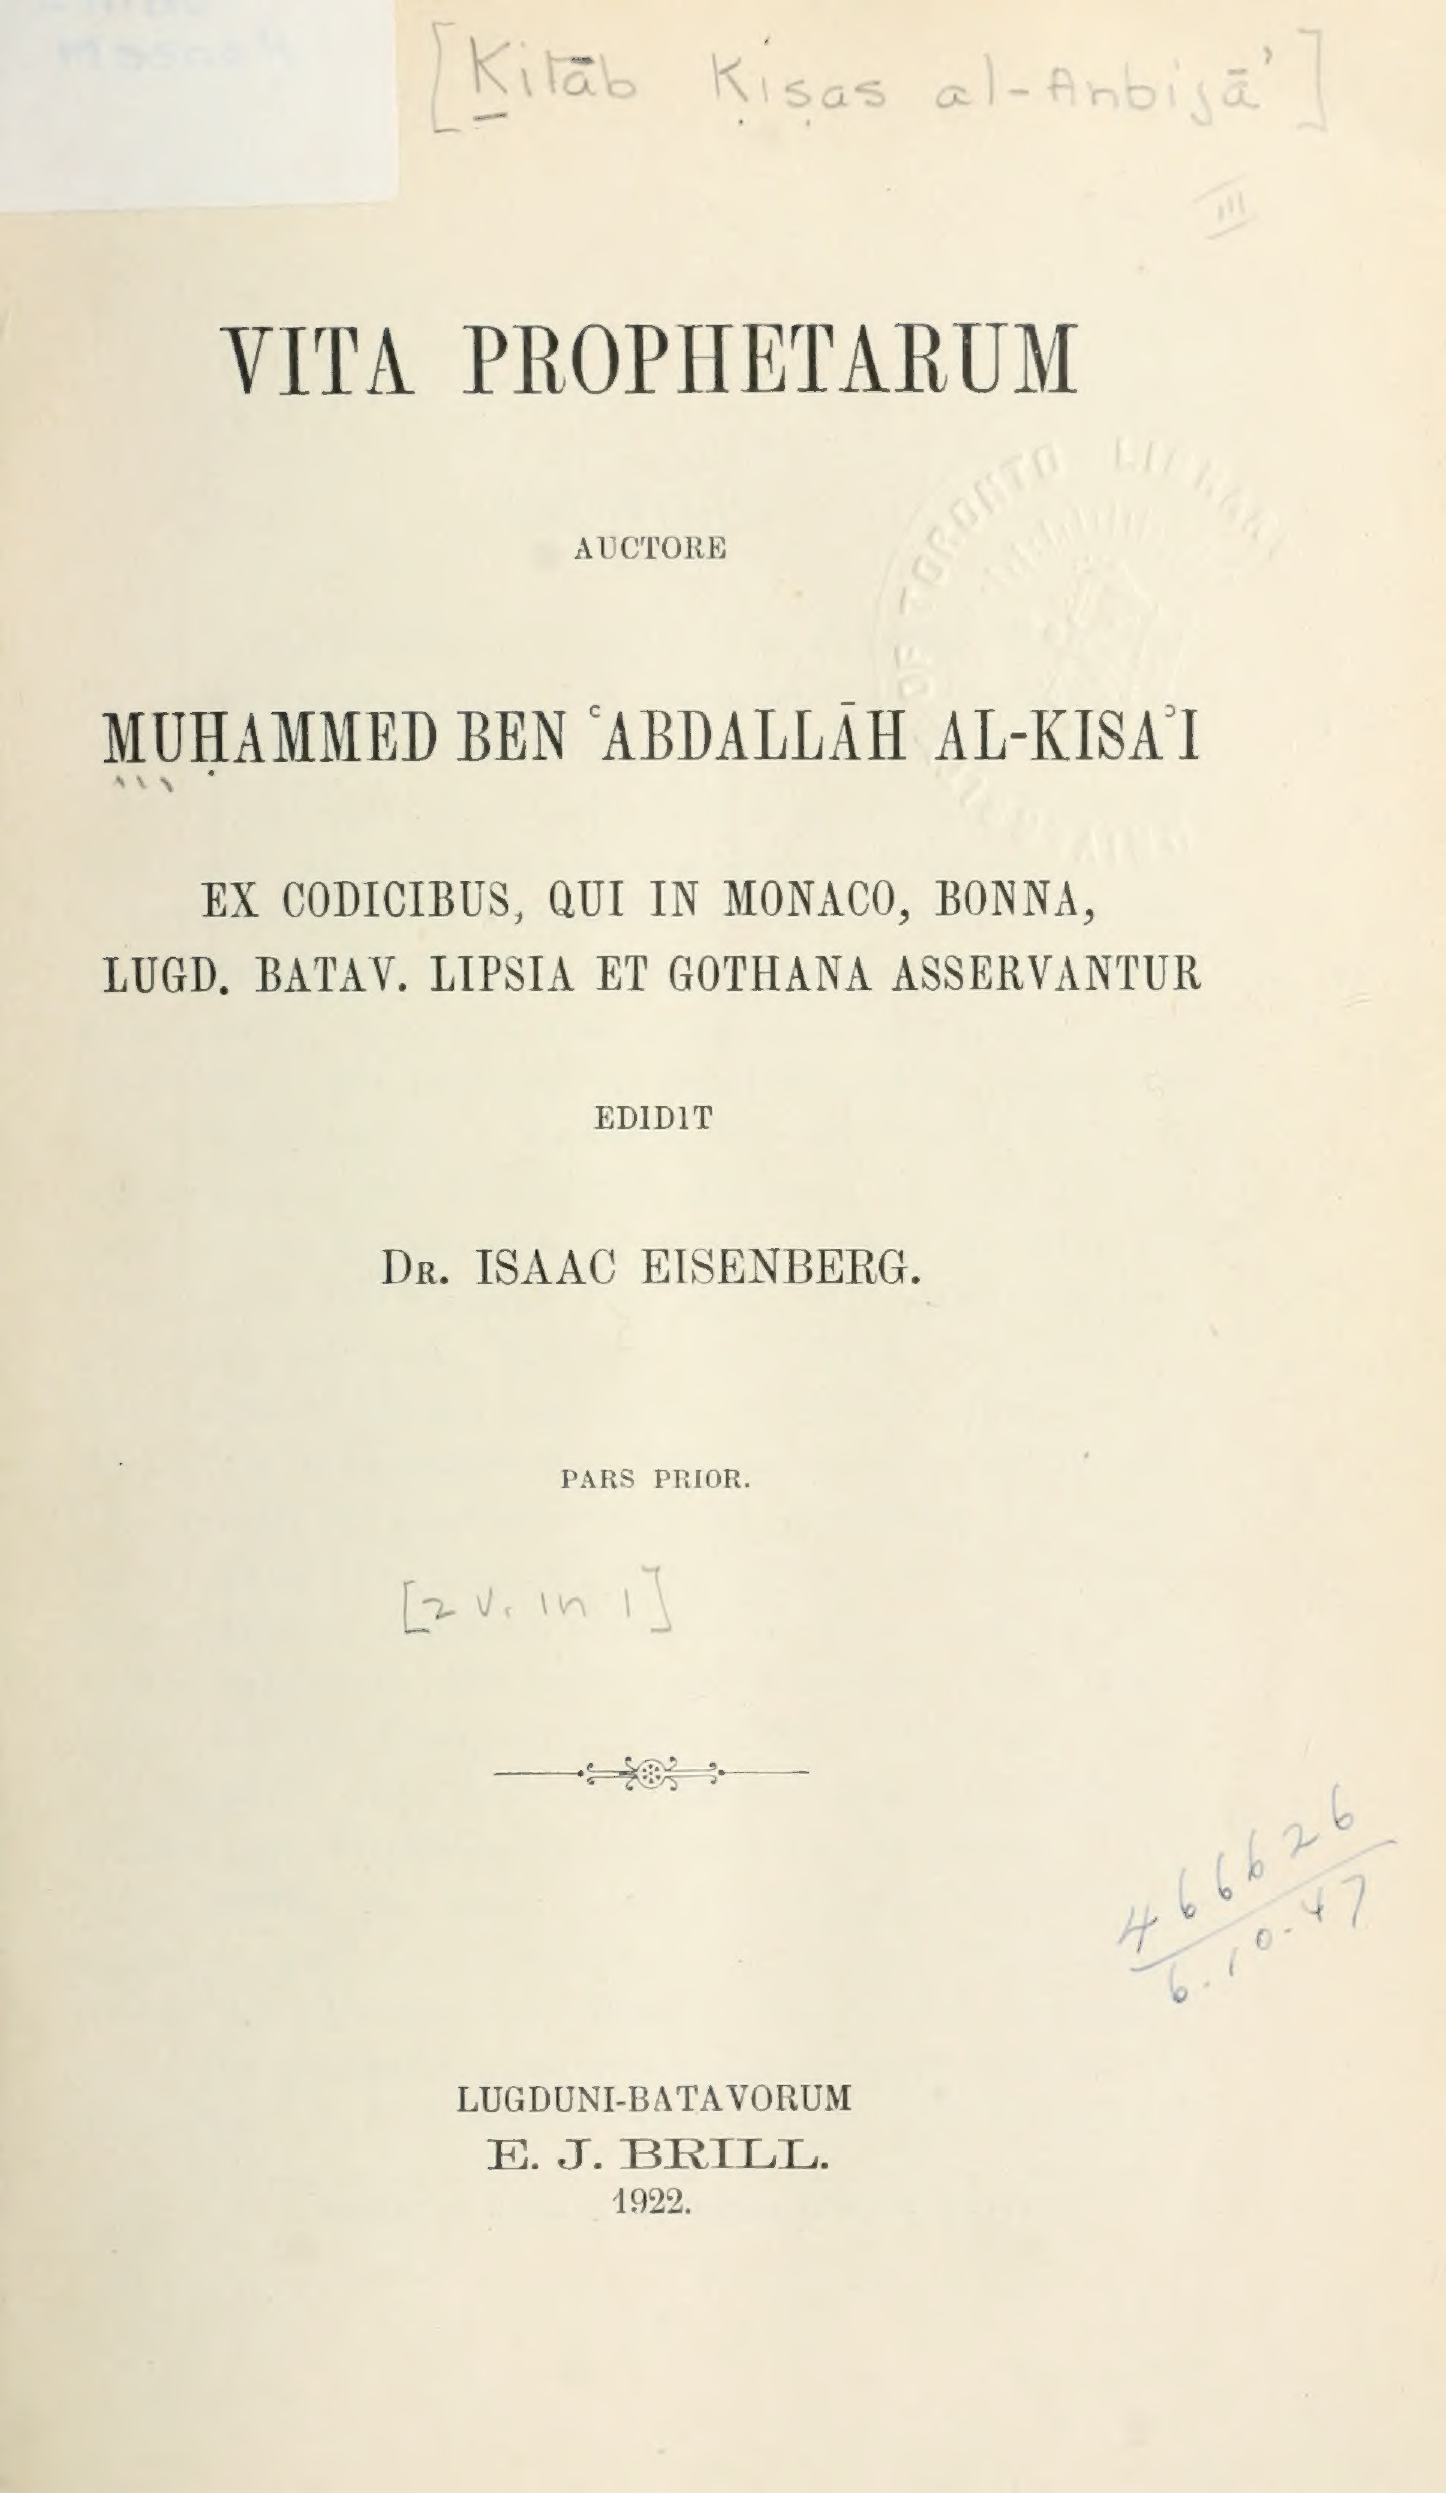 [Kitāb Ḳiṣas al-Anbijā']
III
VITA PROPHETARUM
AUCTORE
MUḤAMMED BEN ʿABDALLĀH AL-KISAʾI
EX CODICIBUS, QUI IN MONACO, BONNA,
LUGD. BATAV. LIPSIA ET GOTHANA ASSERVANTUR
EDIDIT
DR. ISAAC EISENBERG.
PARS PRIOR.
[2 v. in 1]
466626
6.10.47
LUGDUNI-BATAVORUM
E. J. BRILL.
1922.
OF TORONTO LIBRARY